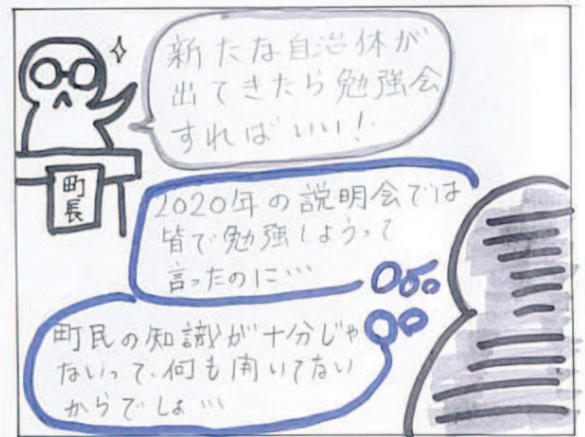 新たな自治体が
出てきたら勉強会
すればいい！
町長
2020年の説明会では
皆で勉強しようって
言ったのに…
町民の知識が十分じゃ
ないって、何も開いてない
からでしょ…